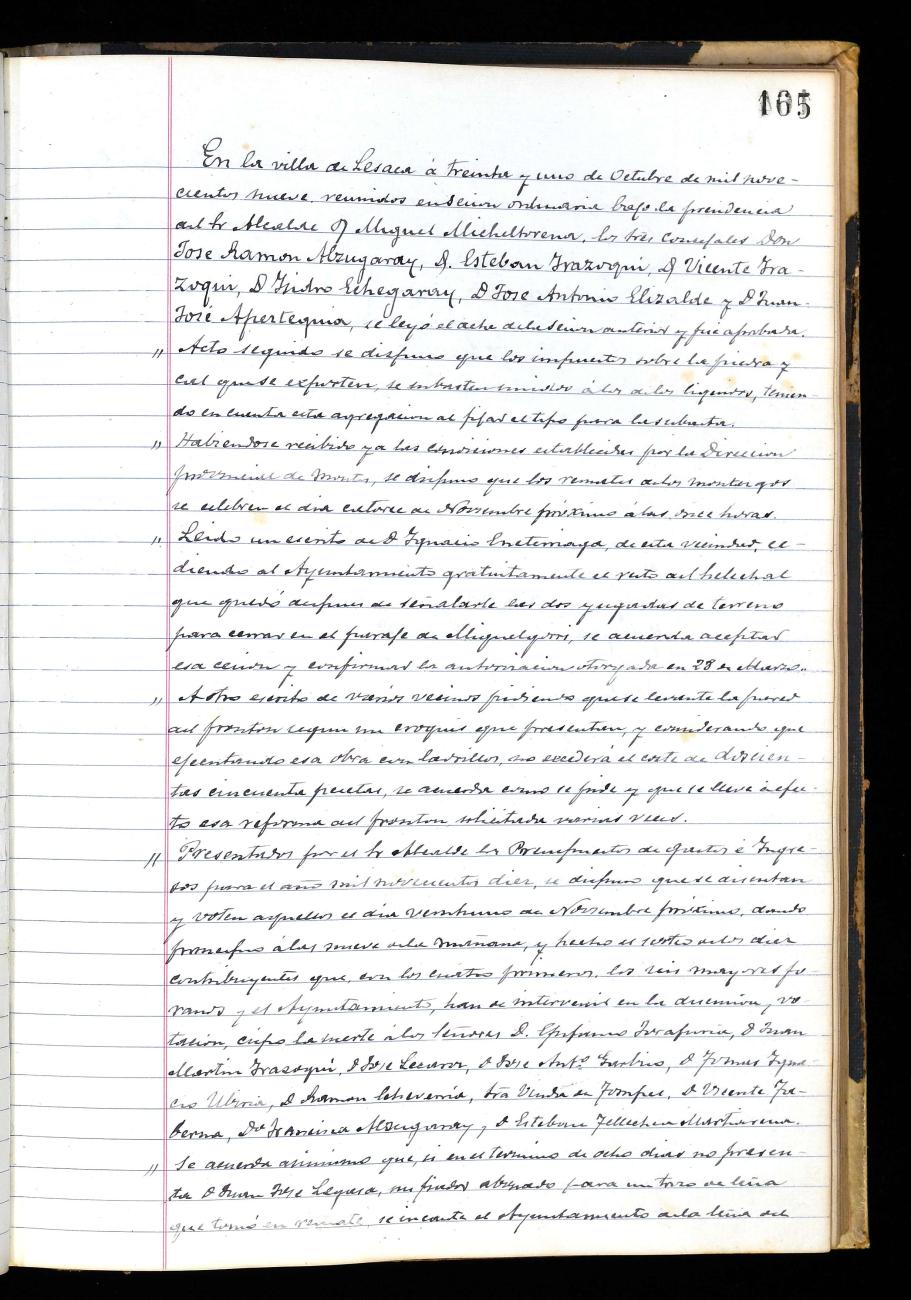 165
En la villa de Lesaca á treinta y uno de Octubre de mil nove-
cientos nueve reunidos en sesion ordinaria bajo la presidencia
del Sr Alcalde D Miguel Micheltorena, los sres Concejales Don
Jose Ramon Alzugaray, D. Esteban Irazoqui, D Vicente Ira-
zoqui, D Isidro Echegaray, D Jose Antonio Elizalde y D Juan
José Apertequia, se leyó el acta de la sesion anterior y fue aprobada.
" Acto seguido se dispuso que los impuestos sobre la piedra y
cal que se exporten, se subasten unidos á los de los liquidos, tenien-
do en cuenta esta agregacion al fijar el tipo para la subasta.
" Habiendose recibido ya las condiciones establecidas por la Direccion
provincial de Montes, se dispuso que los remates de los montazgos
se celebren el dia catorce de Noviembre próximo á las once horas.
" Leido un escrito de D Ygnacio, de esta vecindad, ce-
diendo al Ayuntamiento gratuitamente el resto del helechal
que quedó despues de señalarle las dos yugadas de terreno
para cerrar en el paraje de Miguelgorri, se acuerda aceptar
esa cesion y confirmar la autorizacion otorgada en 28 de Marzo.
" A otro escrito de varios vecinos pidiendo que se levante la pared
del fronton segun un croquis que presentan, y considerando que
ejecutando esa obra con ladrillos, no excederá el coste de doscien-
tas cincuenta pesetas, se acuerda como se pide y que se lleve á efec-
to esa reforma del fronton solicitada varias veces.
" Presentados por el Sr Alcalde los Presupuestos de gastos é Ingre-
sos para el año mil novecientos diez, se dispuso que se discutan
y voten aquellos el dia veintiuno de Noviembre próximo, dando
principio á las nueve de la mañana, y hecho el sorteo de los diez
contribuyentes que, con los cuatro primeros, los seis mayores fo-
ranos y el Ayuntamiento, han de intervenir en la discusion y vo-
tacion, cupo la suerte á los Señores D. Epifanio, D Juan
Martin Irazoqui, D Jose, D Jose Antº, D Tomas Igna-
cio Ubiria, D Ramon Echeverria, Sra Viuda de, D Vicente Ta-
berna, Dª Francisca Alzugaray, D Esteban Tellechea Martiarena.
" Se acuerda asimismo que, si en el termino de ocho dias no presen-
ta D Juan Jose Legasa, un fiador abonado para un trozo de leña
que tomó en remate, se incaute el Ayuntamiento de la leña del